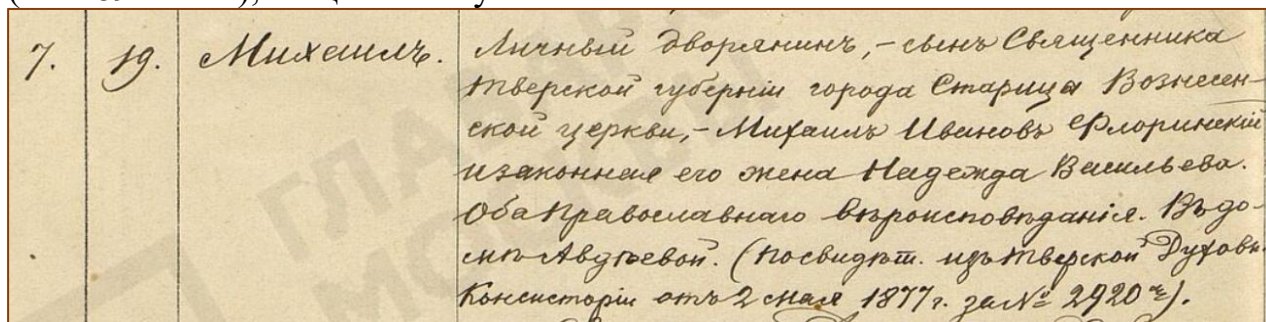 7. 19. Михаилъ. Личный дворянинъ, – сынъ Священника
Тверской губерніи города Старица Вознесен-
ской церкви, – Михаилъ Ивановъ Флоринскій
и законная его жена Надежда Васильева.
Оба православнаго вѣроисповѣданія. Въ до-
мѣ Авдѣевой. (по свидѣт. изъ Тверской Духовн.
Консисторіи отъ 2 мая 1877 г. за № 2920).